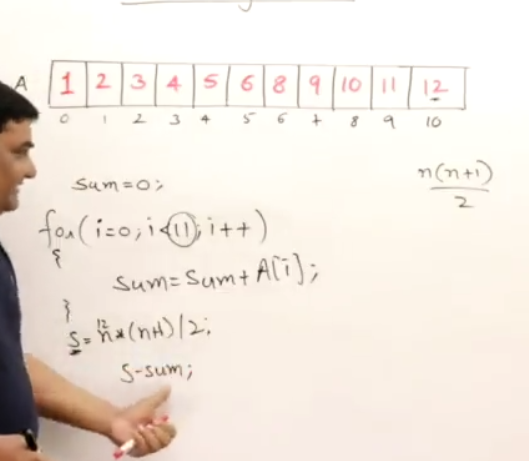 A
1 2 3 4 5 6 8 9 10 11 12
0 1 2 3 4 5 6 7 8 9 10
n(n+1)
2
sum=0;
for(i=0;i<11;i++)
{
sum=sum+A[i];
}
12
S=n*(n+1)/2;
S-sum;